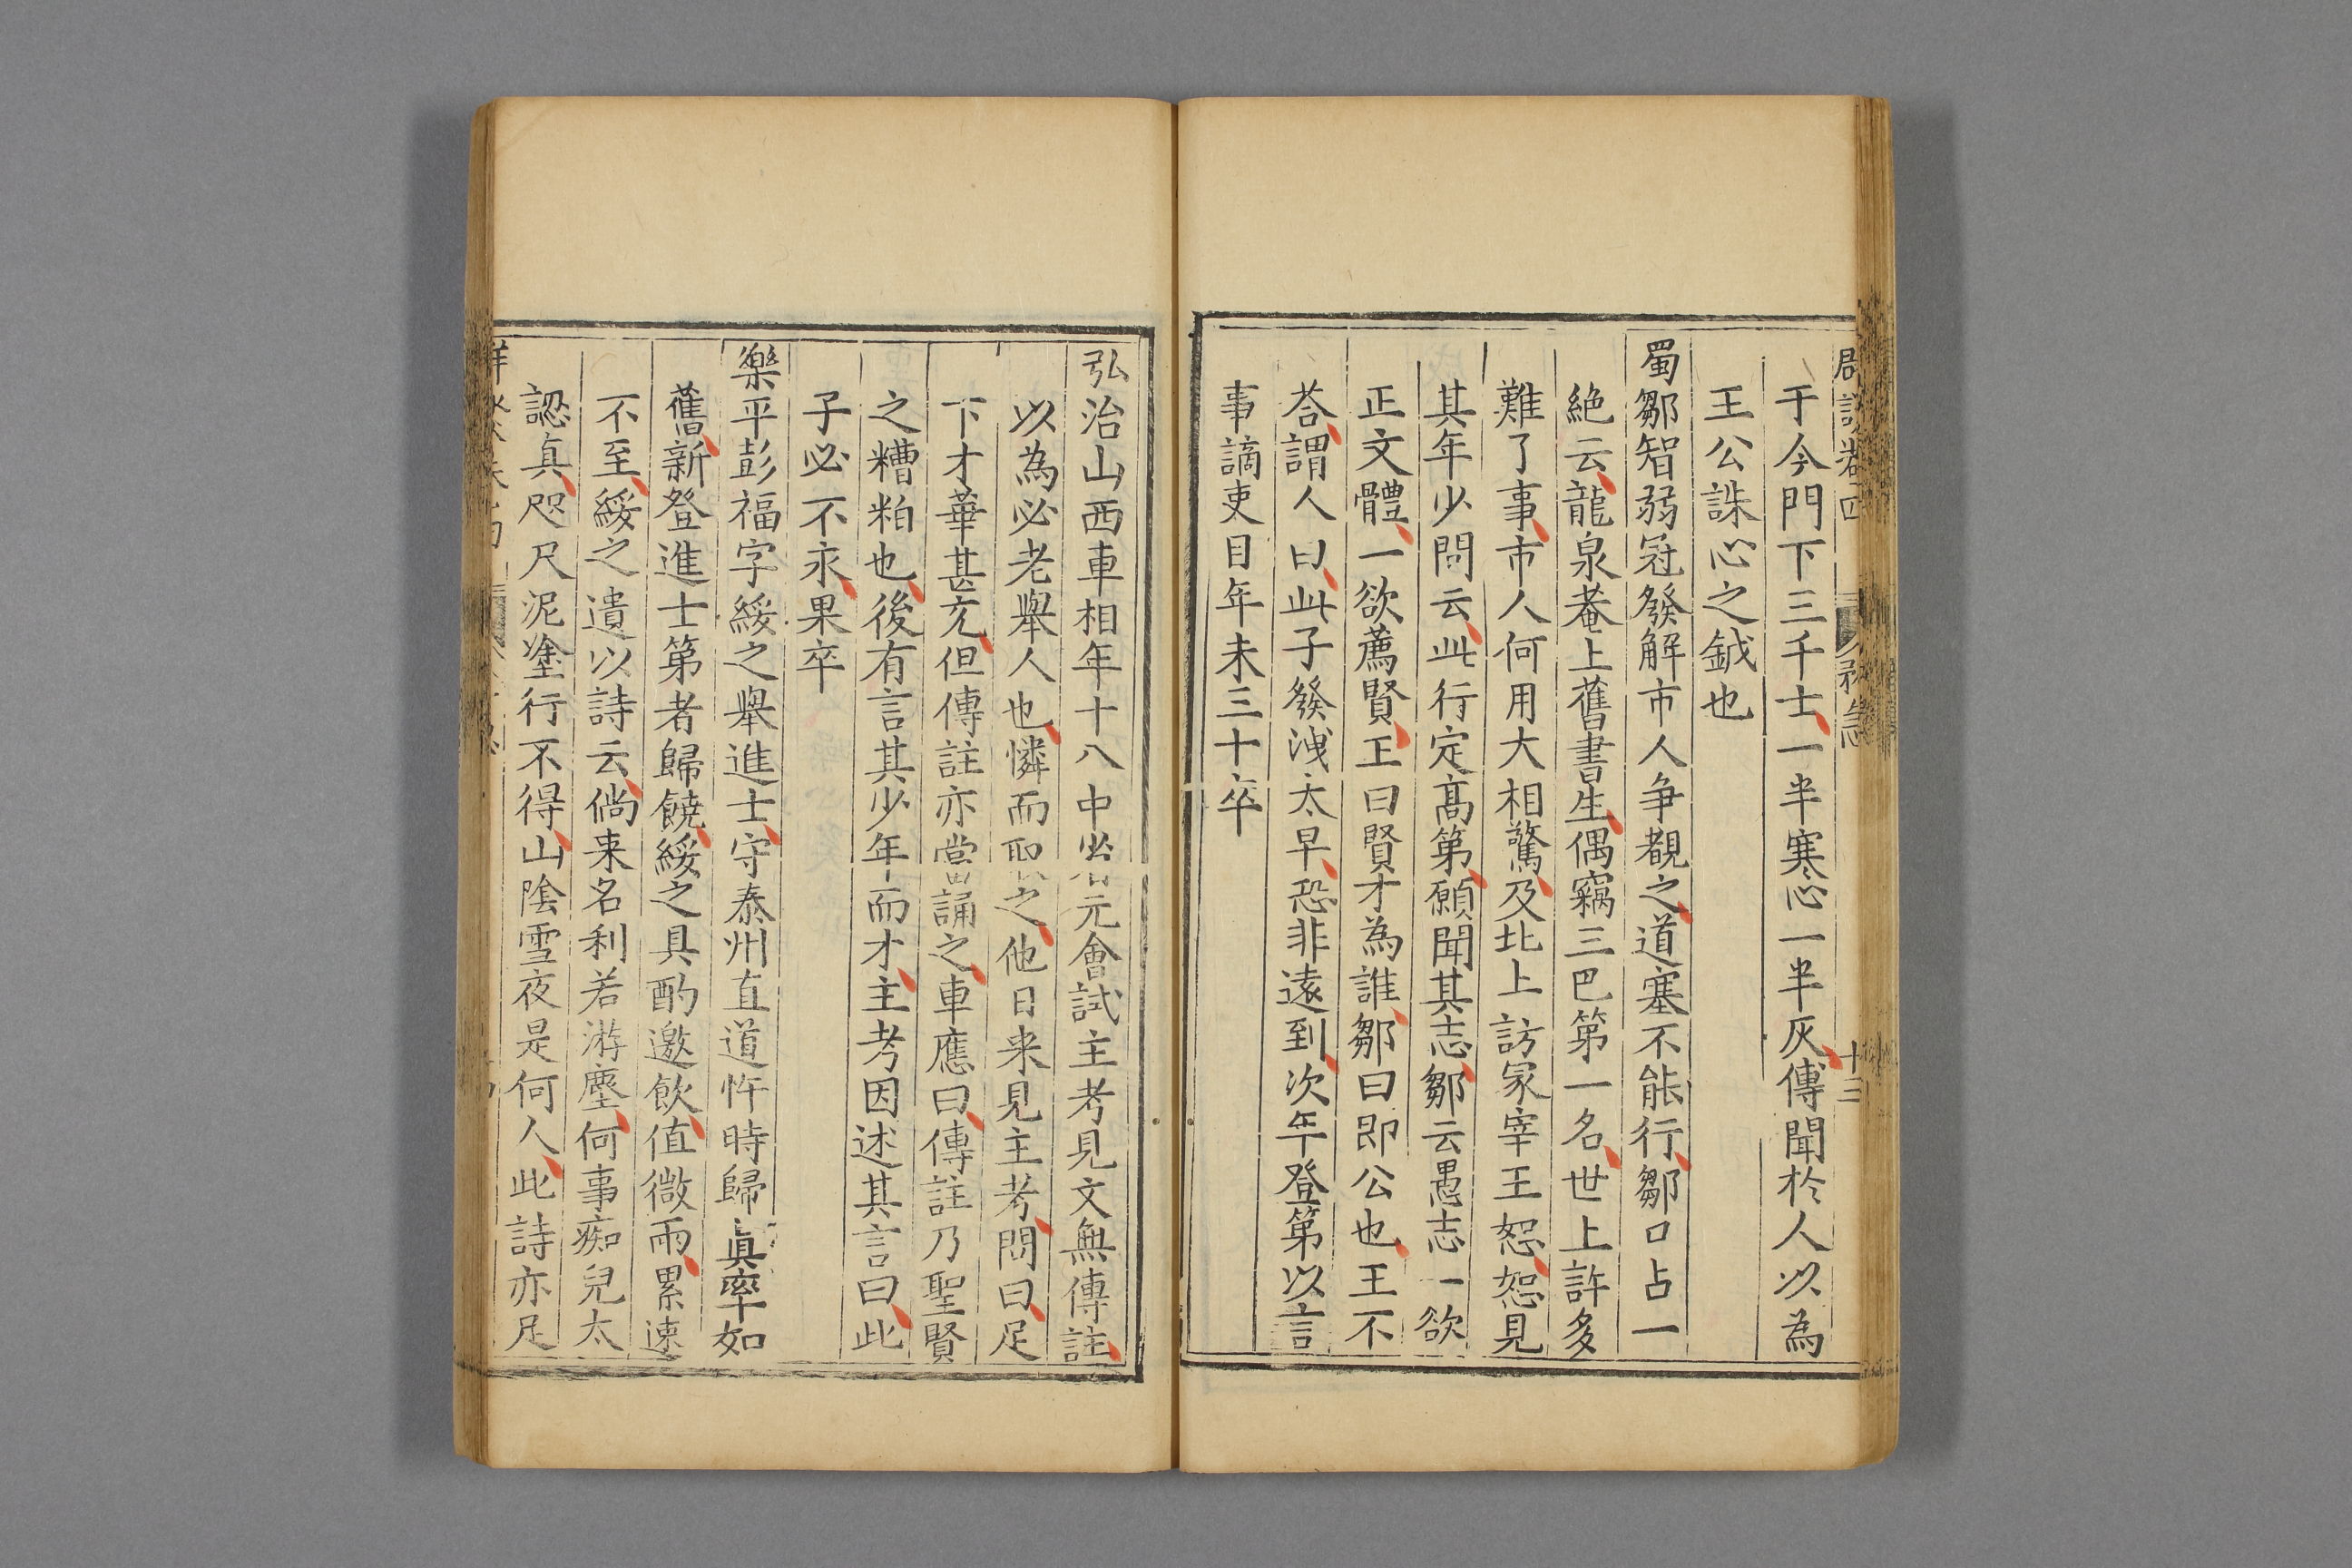 于今門下三千士一半寒心一半灰傳聞於人以為
王公誅心之鉞也
蜀鄒智弱冠發解市人争覩之道塞不能行鄒口占一
絶云龍泉菴上舊書生偶竊三巴第一名世上許多
難了事市人何用大相驚及北上訪冢宰王恕恕見
其年少問云此行定髙第願聞其志鄒云愚志一欲
正文體一欲薦賢王曰賢才為誰鄒曰即公也王不
荅謂人曰此子發洩太早恐非遠到次年登第以言
事謫吏目年未三十卒
弘治山西車相年十八中省元會試主考見文無傳註
以為必老舉人也憐而取之他日来見主考問曰足
下才華甚充但傳註亦當誦之車應曰傳註乃聖賢
之糟粕也後有言其少年而才主考因述其言曰此
子必不永果卒
樂平彭福字綏之舉進士守泰州直道忤時歸真率如
舊新登進士第者歸饒綏之具酌邀飲值微雨累速
不至綏之遺以詩云倘来名利若游塵何事痴兒太
認真咫尺泥塗行不得山陰雪夜是何人此詩亦足